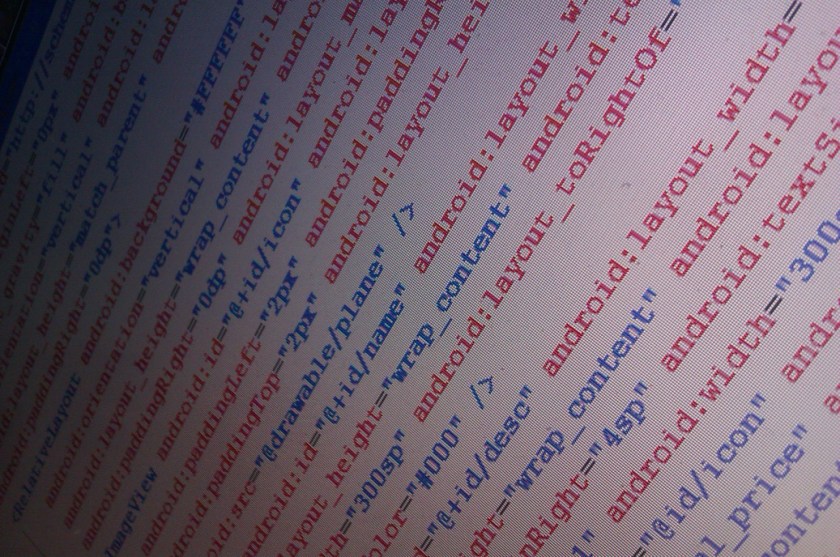 ="http://schem
ginLeft="0px" android:b
_gravity="fill" android:la
ientation="vertical"
d:layout_height="match_parent"
android:paddingRight="0dp">
<RelativeLayout android:background="#FFFFFF"
android:orientation="vertical" android:la
android:layout_height="wrap_content" android
android:paddingRight="0dp" android:layout_m
<ImageView android:id="@+id/icon" android:lay
android:paddingLeft="2px" android:padding
android:paddingTop="2px" android:layout_hei
d:src="@drawable/plane" />
android:id="@+id/name" android:layout_w
layout_height="wrap_content" android:te
th="300sp" android:layout_toRightOf="
olor="#000" />
="@+id/desc" android:layout_width=
ght="wrap_content" android:layo
nRight="4sp" android:texts
android:width="300
="@id/icon" andr
l_price" a
conten